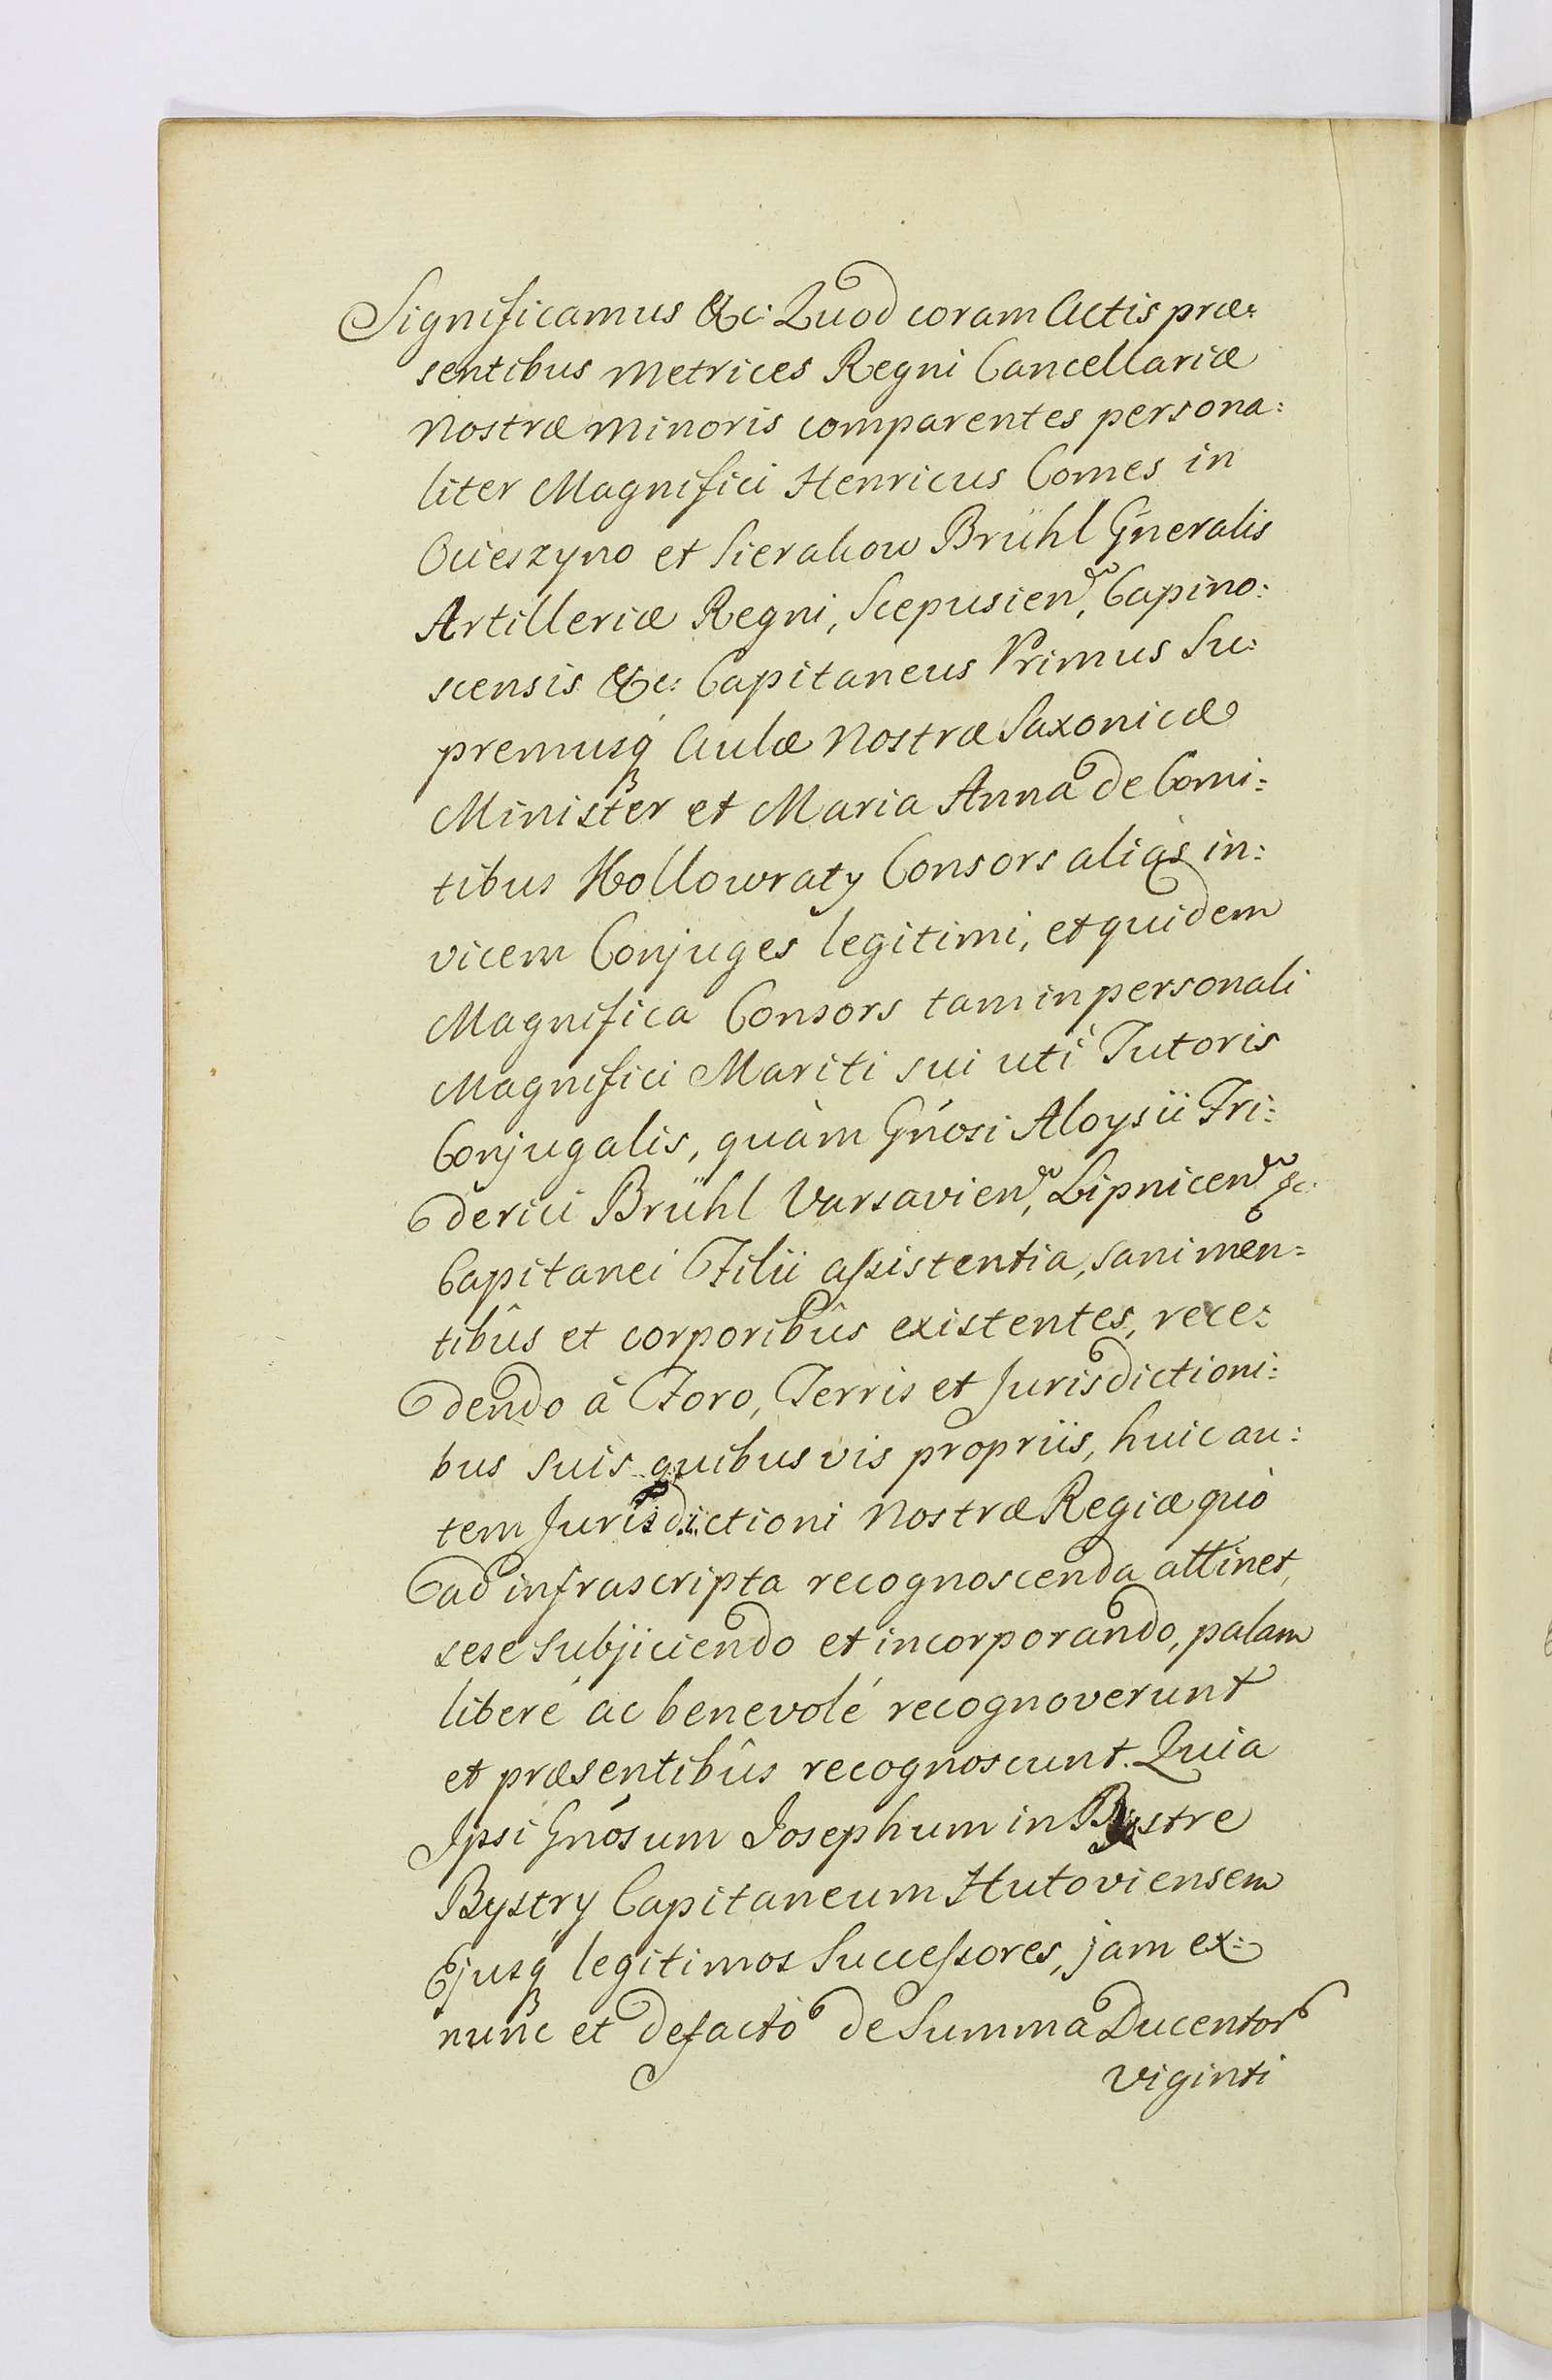 Significamus &c: Quod coram Actis præ:
sentibus Metrices Regni Cancellariæ
Nostræ Minoris comparentes persona:
liter Magnifici Henricus Comes in
Ocieszyno et Sierakow Brühl Gńeralis
Artilleriæ Regni, Scepusien, Capino:
scensis &c: Capitaneus Primus Su:
premusq Aulæ Nostræ Saxonicæ
Minister et Maria Anna de Comi:
tibus Kollowraty Consors alias in:
vicem Conjuges legitimi, et quidem
Magnifica Consors tam in personali
Magnifici Mariti sui uti Tutoris
Conjugalis, quàm Gńosi Aloysii Fri:
derici Brühl Varsavien, Lipnicen &c:
Capitanei Filii assistentia, sani men:
tibûs et corporibûs existentes, rece:
dendo â Foro, Terris et Jurisdictioni:
bus suis quibusvis propriis, huic au:
tem Jurisdictioni Nostræ Regiæ quò
ad infrascripta recognoscenda attinet,
sese subjiciendo et incorporando, palam
liberé ac benevolé recognoverunt
et præsentibûs recognoscunt. Quia
Ipsi Gńosum Josephum in Bystre
Bystry Capitaneum Hutoviensem
Ejusq legitimos Successores, jam ex:
nunc et de facto de Summa Ducentor
Viginti